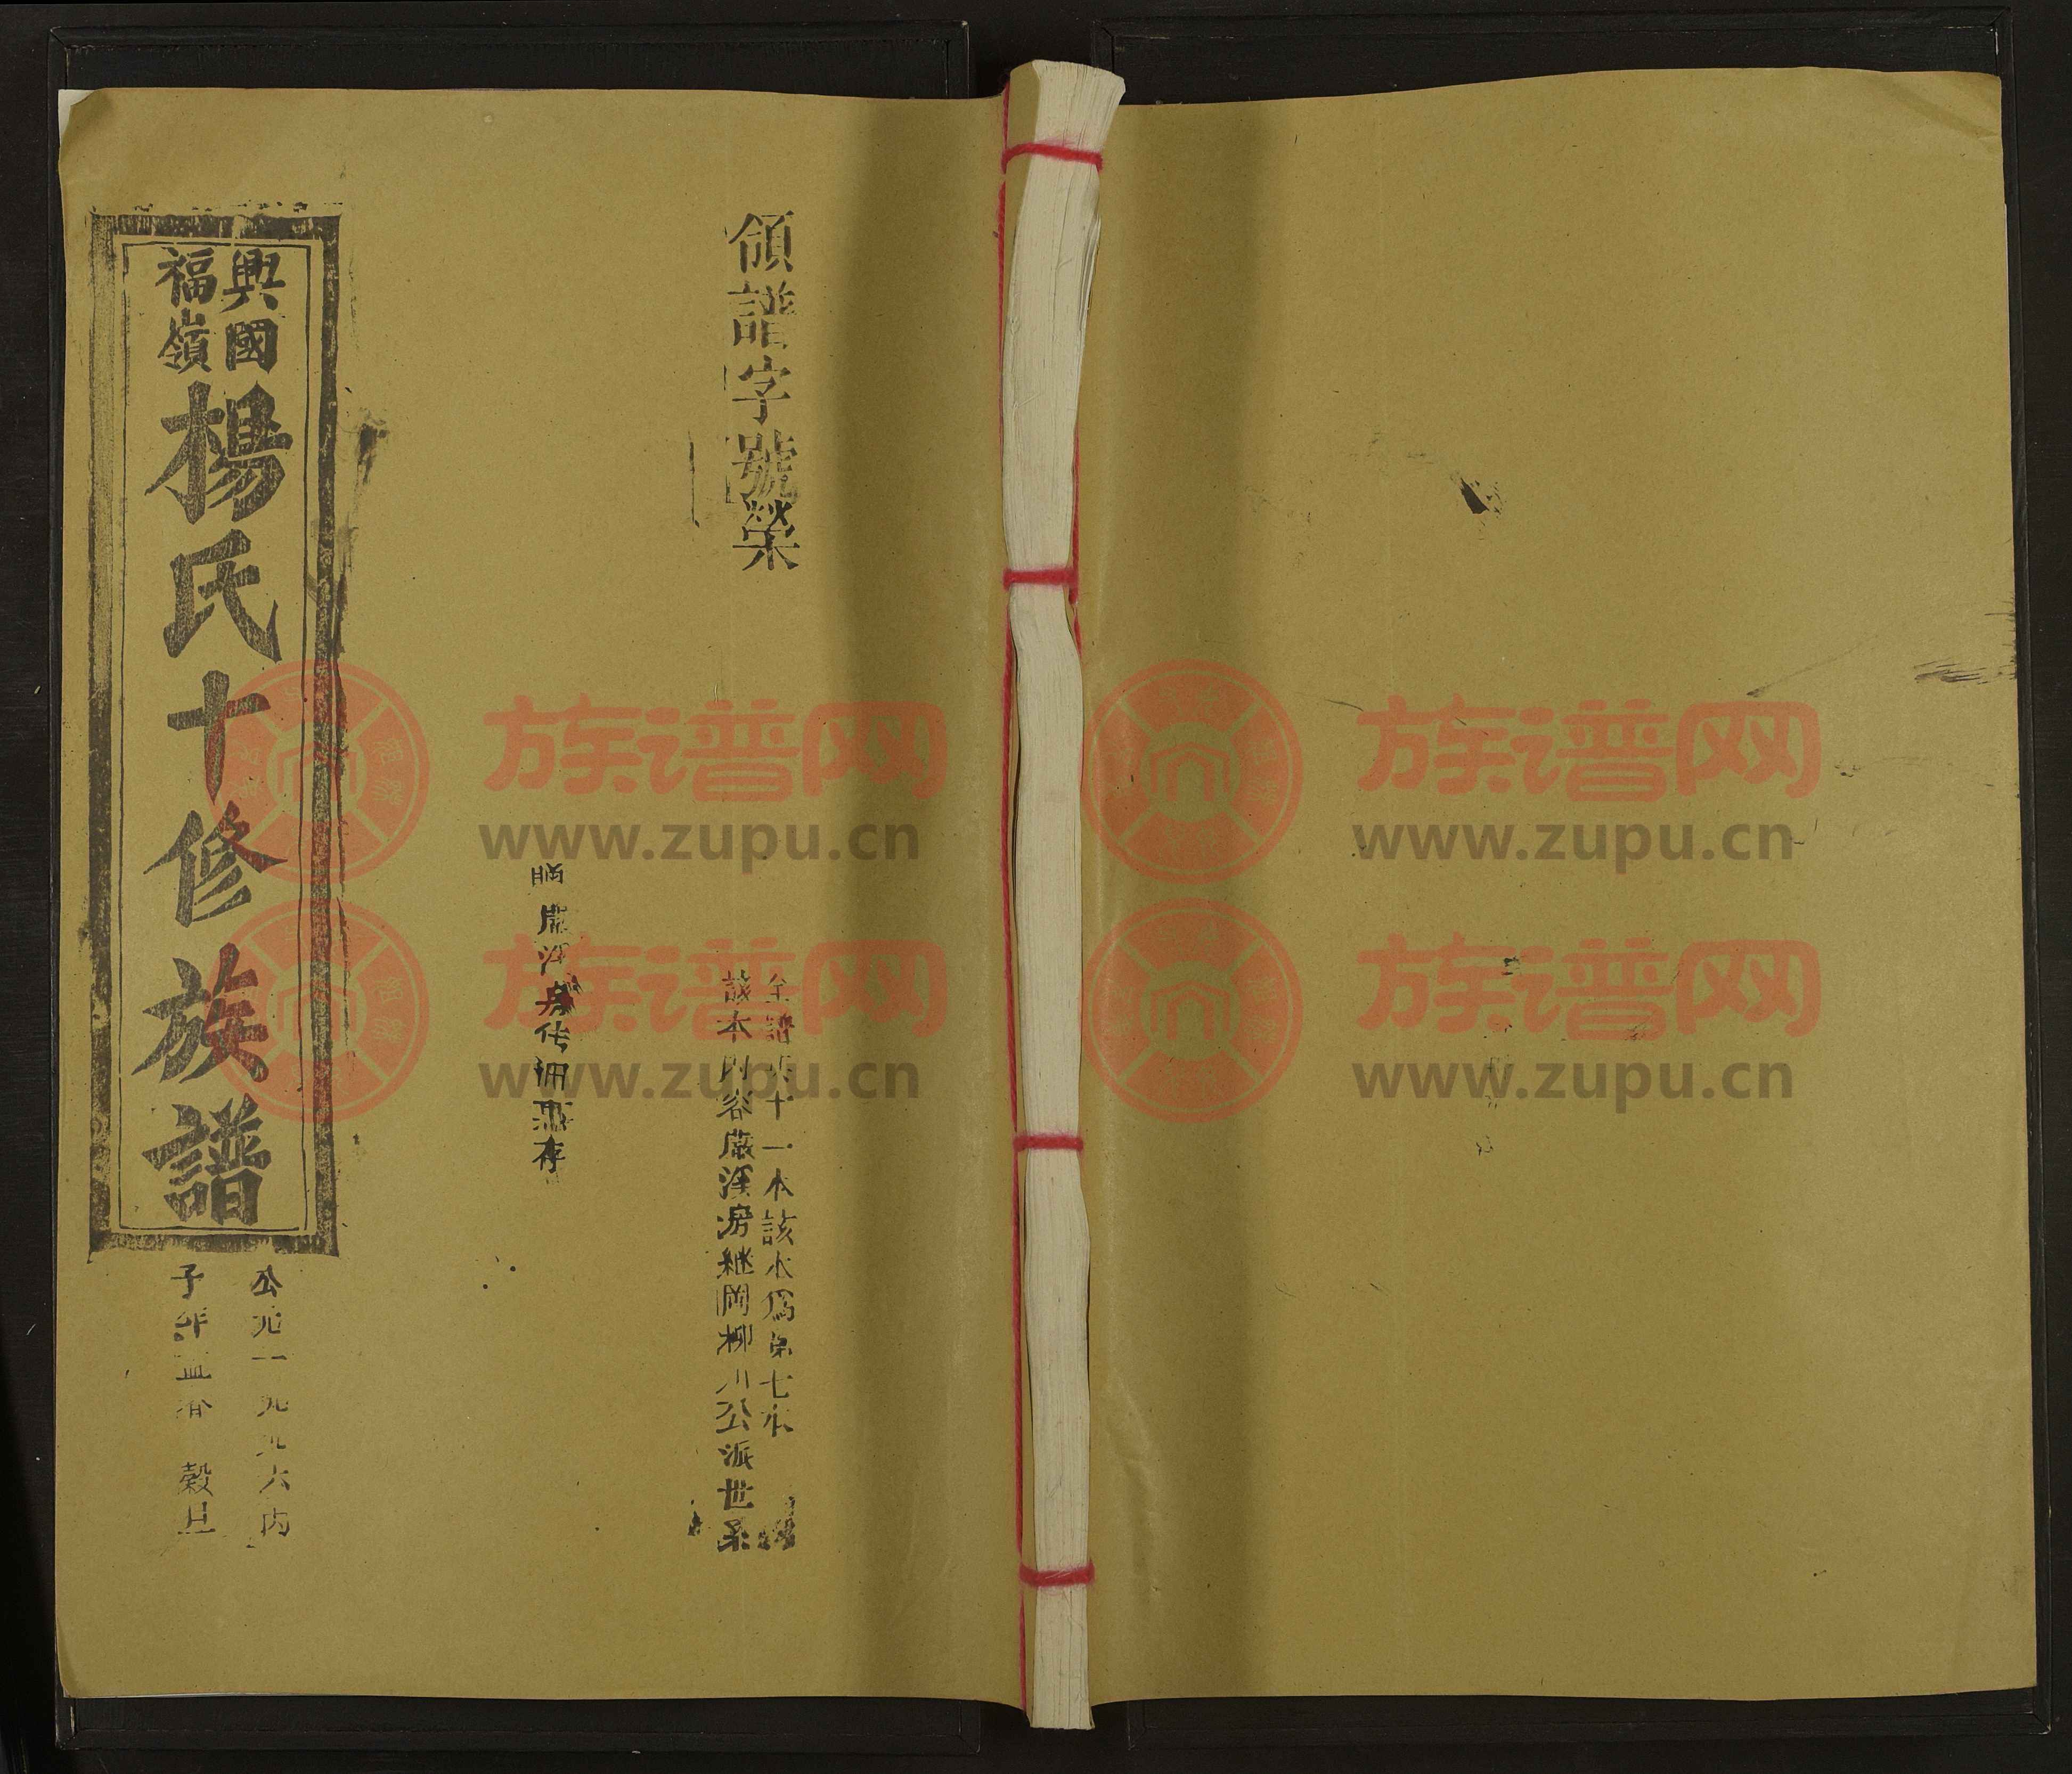 領譜字號榮
全譜共十一本該本為第七本
該本內容嚴渾房継岡柳川公派世系
房传 存
興國
福嶺
楊氏十修族譜
公元一九九六丙
子年孟春 榖旦
族谱网
www.zupu.cn
族谱网
www.zupu.cn
族谱网
www.zupu.cn
族谱网
www.zupu.cn